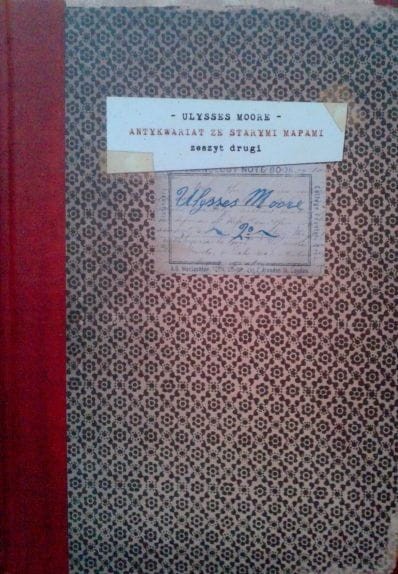 - ULYSSES MOORE -
ANTYKWARIAT ZE STARYMI MAPAMI
zeszyt drugi
NOTE BOOK
Ulysses Moore
~ 2º ~